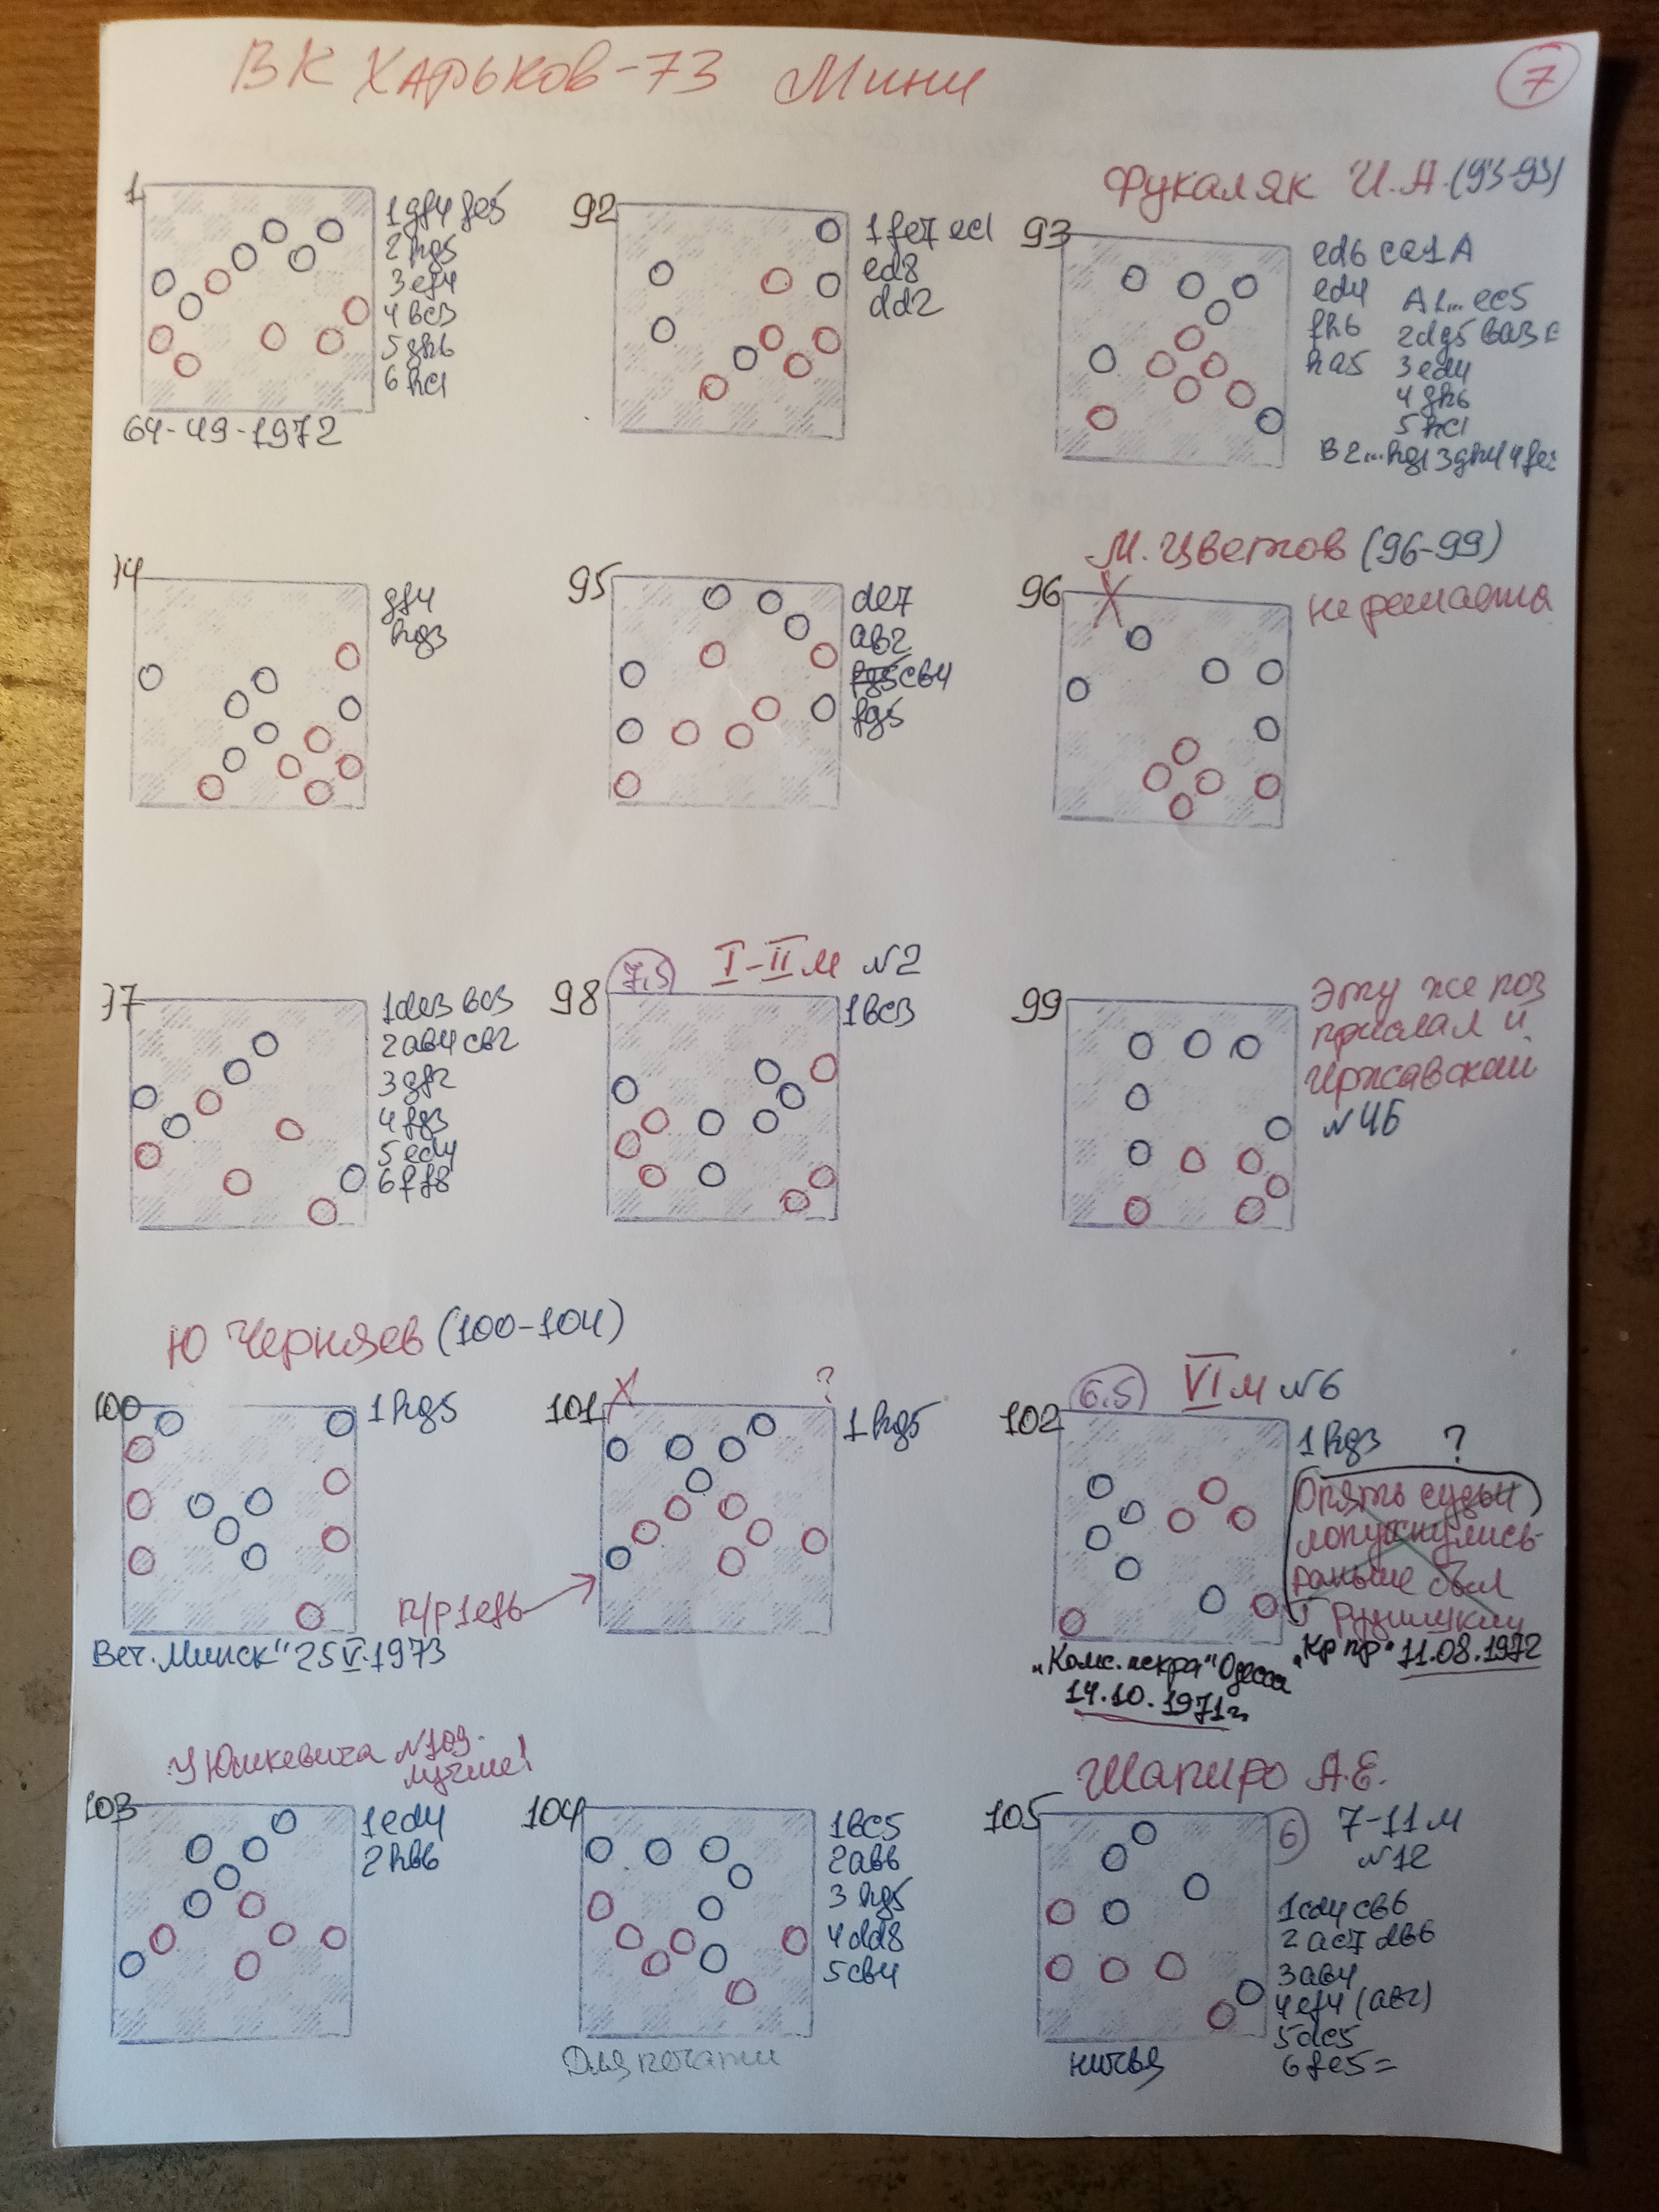 ВК Харьков-73 Мини
7
Фукаляк И.А. (93-95)
1
1 gf4 fe5
2 hg5
3 ef4
4 bc3
5 gh6
6 hc1
64-49-1972
92
1 fe7 ec1
ed8
dd2
93
ed6 ce1 A
ed4
fh6
ha5
A 1... ec5
2 dg5 ba3
3 ed4
4 gh6
5 hc1
B 2... hg1 3 gh4 4 fe
94
gf4
hg3
95
de7
ab2
cb4
fg5
М. Цветков (96-99)
96
не решается
97
1 de3 bc3
2 ab4 cb2
3 gf2
4 fg3
5 ed4
6 ff8
7,5
I-II м №2
98
1 bc3
99
Эту же поз
прислал и
Иржавский
№46
Ю Черняев (100-104)
100
1 hg5
Веч. Минск" 25 V.1973
101
?
1 hg5
п/р 1 ef6
6,5
VI м №6
102
1 hg3 ?
Опять судьи
лопухнулись
раньше был
Г Рудницкий
"Комс. искра" Одесса
14.10.1971г.
"Кр пр" 11.08.1972
У Юшкевича №109
лучше!
103
1 ed4
2 hb6
104
1 bc5
2 ab6
3 hg5
4 dd8
5 cb4
Для печати
Шапиро А.Е.
105
6
7-11 м
№12
1 cd4 cb6
2 ac7 db6
3 ab4
4 ef4 (ab2)
5 dc5
6 fe5=
ничья